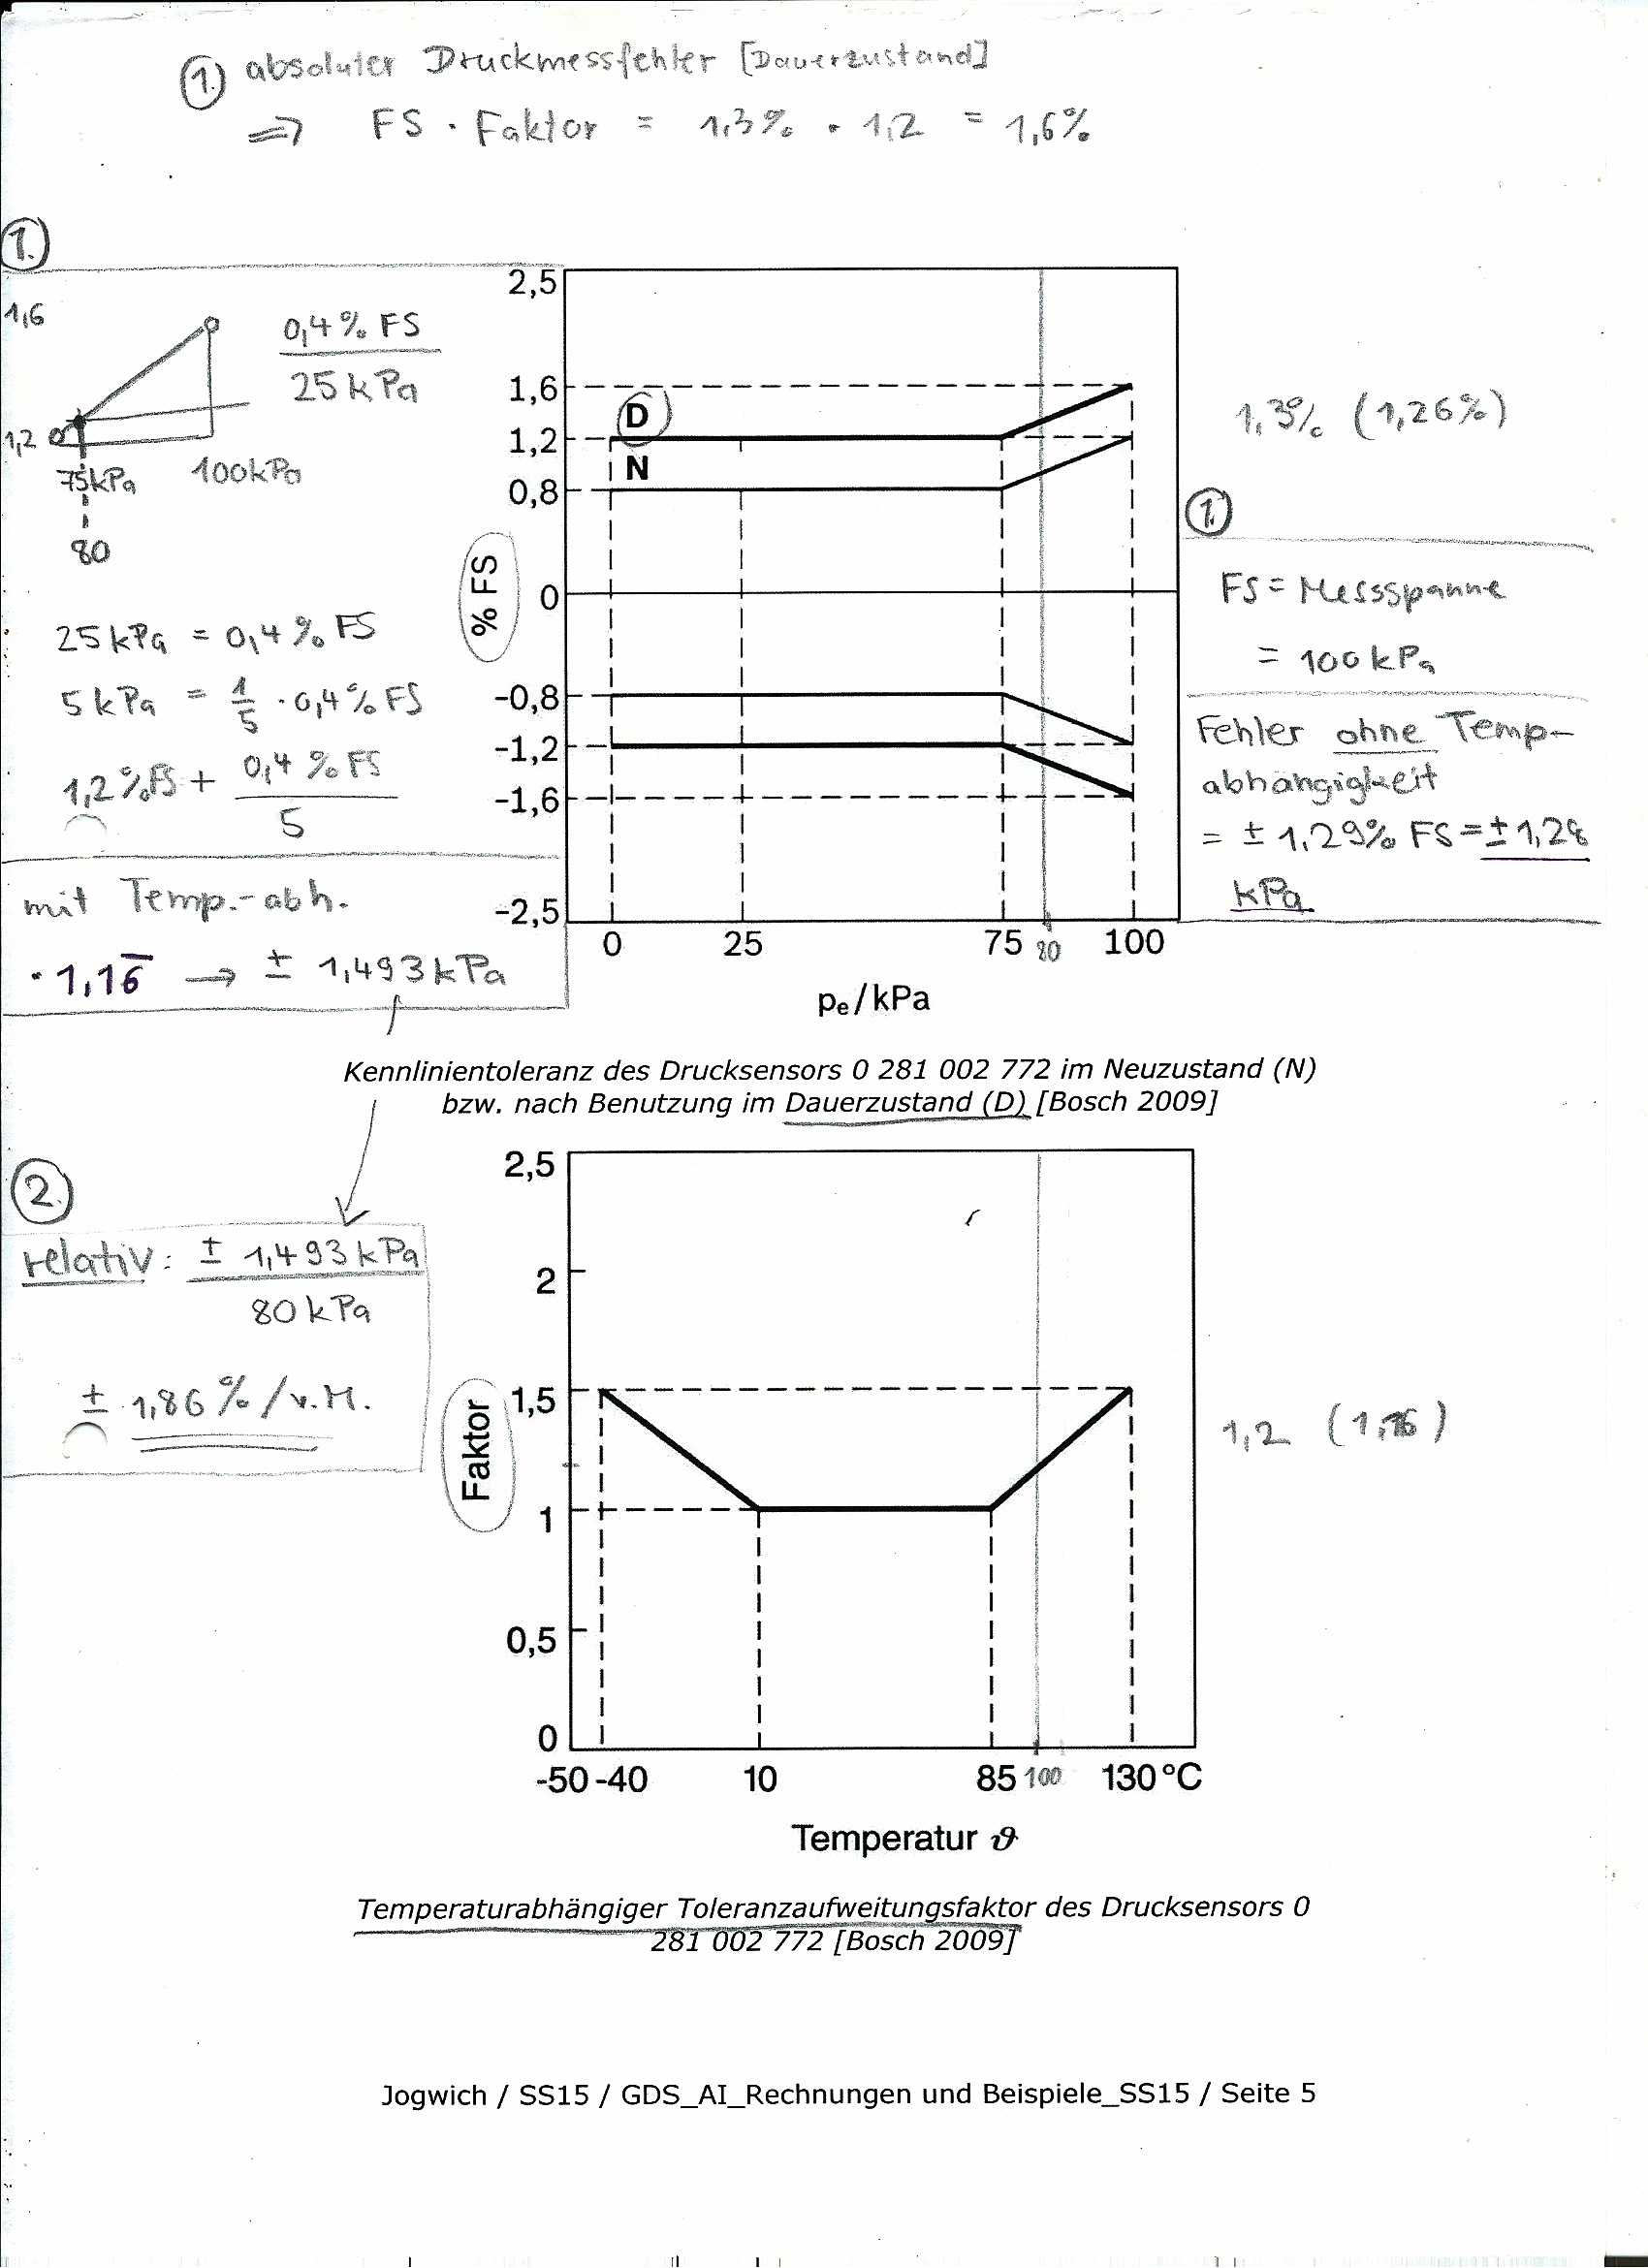 1. absoluter Druckmessfehler [Dauerzustand]
⇒ FS · Faktor = 1,3% · 1,2 = 1,6%
1.
1,6
0,4% FS
25 kPa
1,2
75kPa
100kPa
80
25 kPa = 0,4% FS
5 kPa = 1/5 · 0,4% FS
1,2%FS + 0,4% FS
5
mit Temp.-abh.
· 1,16̅ → ± 1,493 kPa
2,5
1,6
D
1,2
N
0,8
% FS
0
-0,8
-1,2
-1,6
-2,5
0 25 75 80 100
pe/kPa
1,3% (1,26%)
1.
FS = Messspanne
= 100 kPa
Fehler ohne Temp-
abhängigkeit
= ± 1,29% FS = ± 1,28
kPa
Kennlinientoleranz des Drucksensors 0 281 002 772 im Neuzustand (N)
bzw. nach Benutzung im Dauerzustand (D) [Bosch 2009]
2.
relativ: ± 1,493 kPa
80 kPa
± 1,86% / v.M.
2,5
2
1,5
Faktor
1
0,5
0
-50 -40 10 85 100 130 °C
Temperatur ϑ
1,2 (1,16)
Temperaturabhängiger Toleranzaufweitungsfaktor des Drucksensors 0
281 002 772 [Bosch 2009]
Jogwich / SS15 / GDS_AI_Rechnungen und Beispiele_SS15 / Seite 5